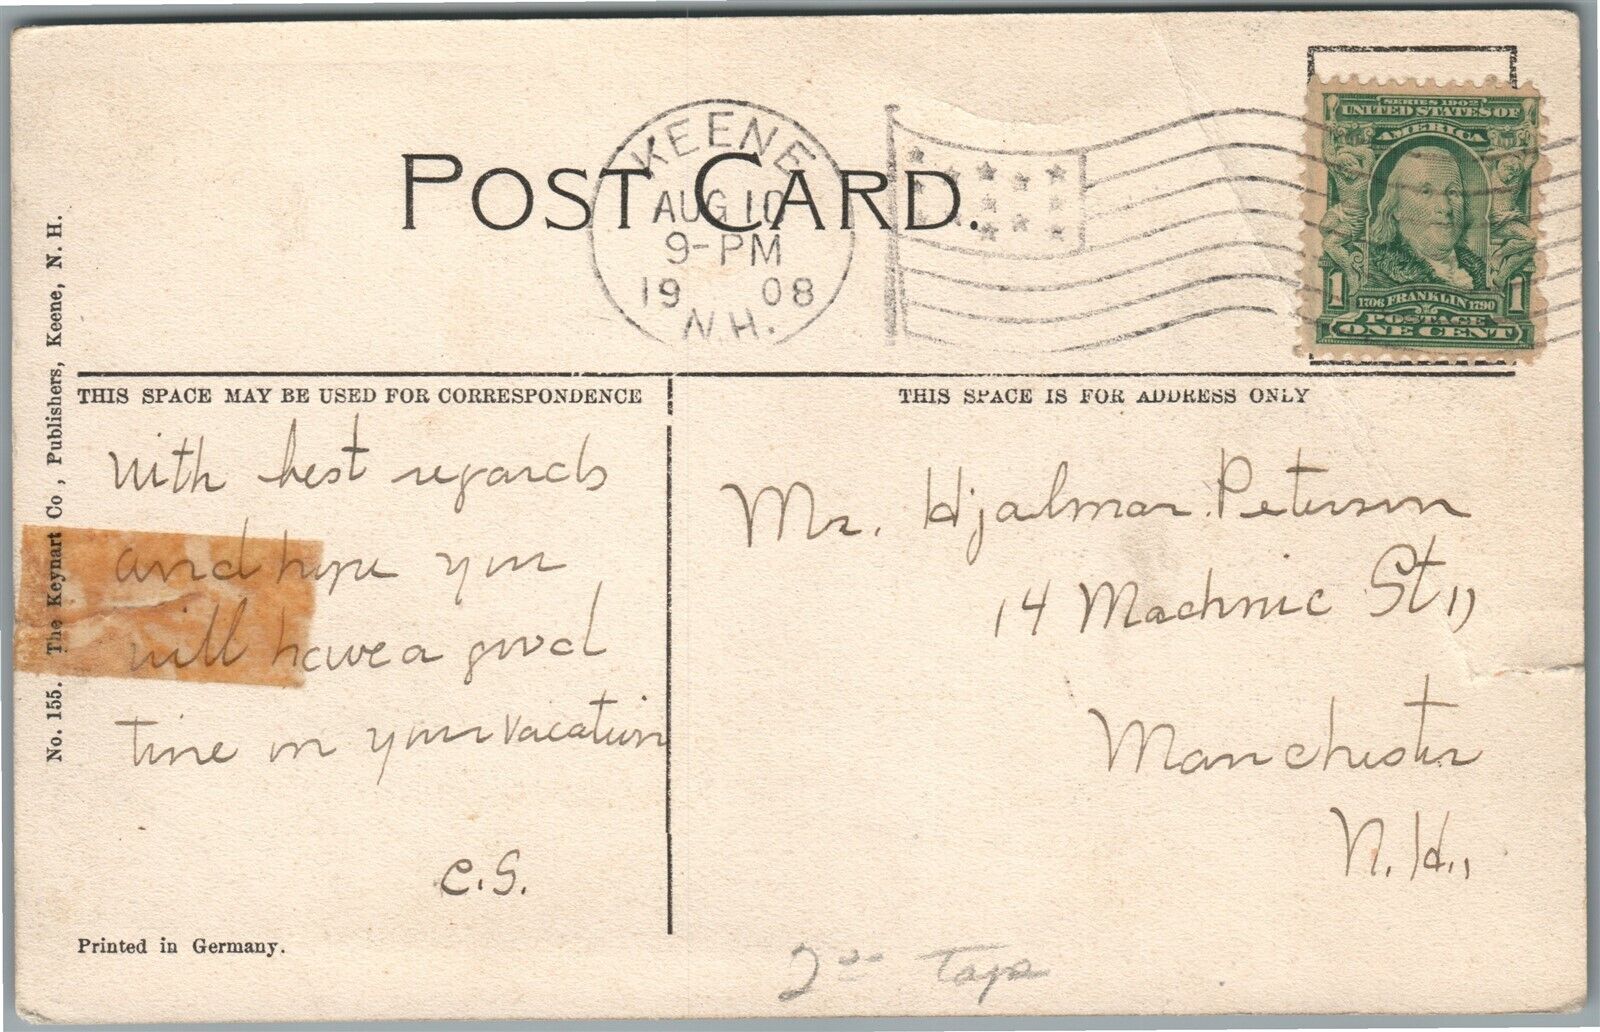 POST CARD.
KEENE
AUG 10
9-PM
19 08
N.H.
SERIES 1902
UNITED STATES OF
AMERICA
1 1706 FRANKLIN 1790 1
POSTAGE
ONE CENT
No. 155. The Keynart Co., Publishers, Keene, N. H.
THIS SPACE MAY BE USED FOR CORRESPONDENCE
With best regards
and hope you
will have a good
time on your vacation
C.S.
Printed in Germany.
THIS SPACE IS FOR ADDRESS ONLY
Mr. Hjalmar Peterson
14 Machnic St,,
Manchester
N.H.,
2.00 Tape